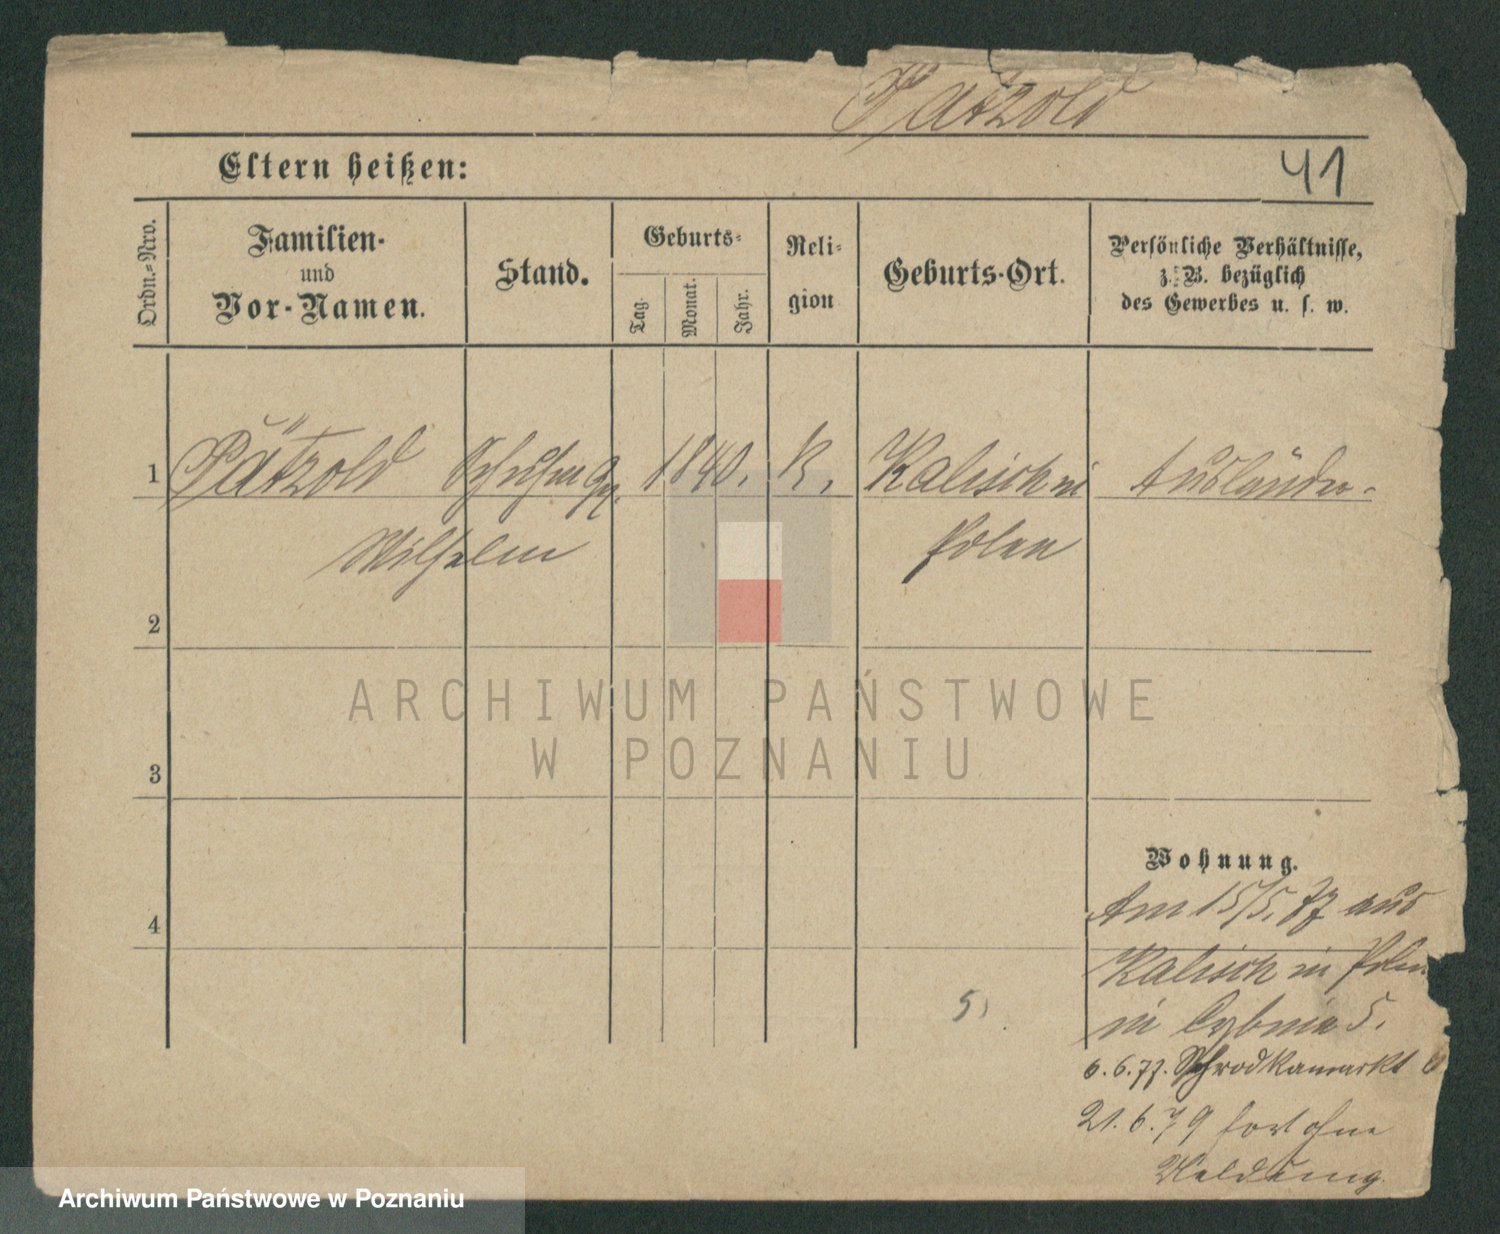 Pätzold
Eltern heißen:
41
Ordn.-Nro.
Familien-
und
Vor-Namen.
Stand.
Geburts-
Tag.
Monat.
Jahr.
Reli-
gion
Geburts-Ort.
Persönliche Verhältnisse,
z. B. bezüglich
des Gewerbes u. s. w.
1 Pätzold 1840. K. Kalisch in Ausländer
Wilhelm Polen
2
ARCHIWUM PAŃSTWOWE
W POZNANIU
3
Wohnung.
4
Am 15/5. 77 aus
Kalisch in Polen
in Cybnia 5.
5.
6.6.77. Schrodkamarkt
21.6.79 fort ohne
Meldung.
Archiwum Państwowe w Poznaniu